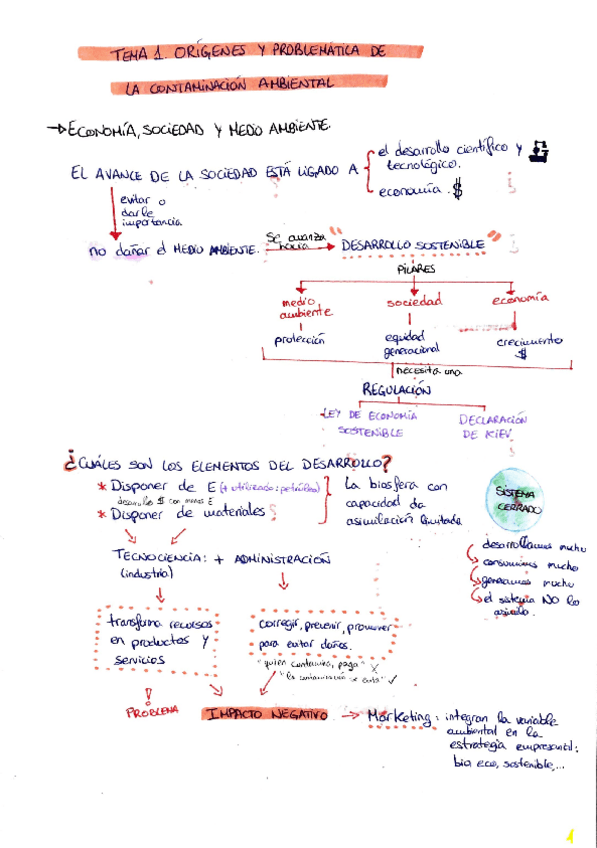 TEMA 1. ORÍGENES Y PROBLEMÁTICA DE
LA CONTAMINACIÓN AMBIENTAL
→ ECONOMÍA, SOCIEDAD Y MEDIO AMBIENTE.
EL AVANCE DE LA SOCIEDAD ESTÁ LIGADO A
el desarrollo científico y
tecnológico.
economía. $
evitar o
darle
importancia
no dañar el MEDIO AMBIENTE.
se avanza
hacia
"DESARROLLO SOSTENIBLE"
PILARES
medio
ambiente
sociedad
economía
protección
equidad
generacional
crecimiento
$
necesita una
REGULACIÓN
LEY DE ECONOMÍA
SOSTENIBLE
DECLARACIÓN
DE KIEV
¿CUÁLES SON LOS ELEMENTOS DEL DESARROLLO?
* Disponer de E (+ utilizado: petróleo)
desarrollo $ con menos E
* Disponer de materiales
la biosfera con
capacidad de
asimilación limitada
SISTEMA
CERRADO
desarrollamos mucho
consumimos mucho
generamos mucho
el sistema NO lo
asimila.
TECNOCIENCIA: + ADMINISTRACIÓN
(industria)
transforma recursos
en productos y
servicios
corregir, prevenir, promover
para evitar daños.
"quien contamina, paga" x
"la contaminación se evita" ✓
!
PROBLEMA
IMPACTO NEGATIVO
→ Marketing: integran la variable
ambiental en la
estrategia empresarial:
bio eco, sostenible,...
1